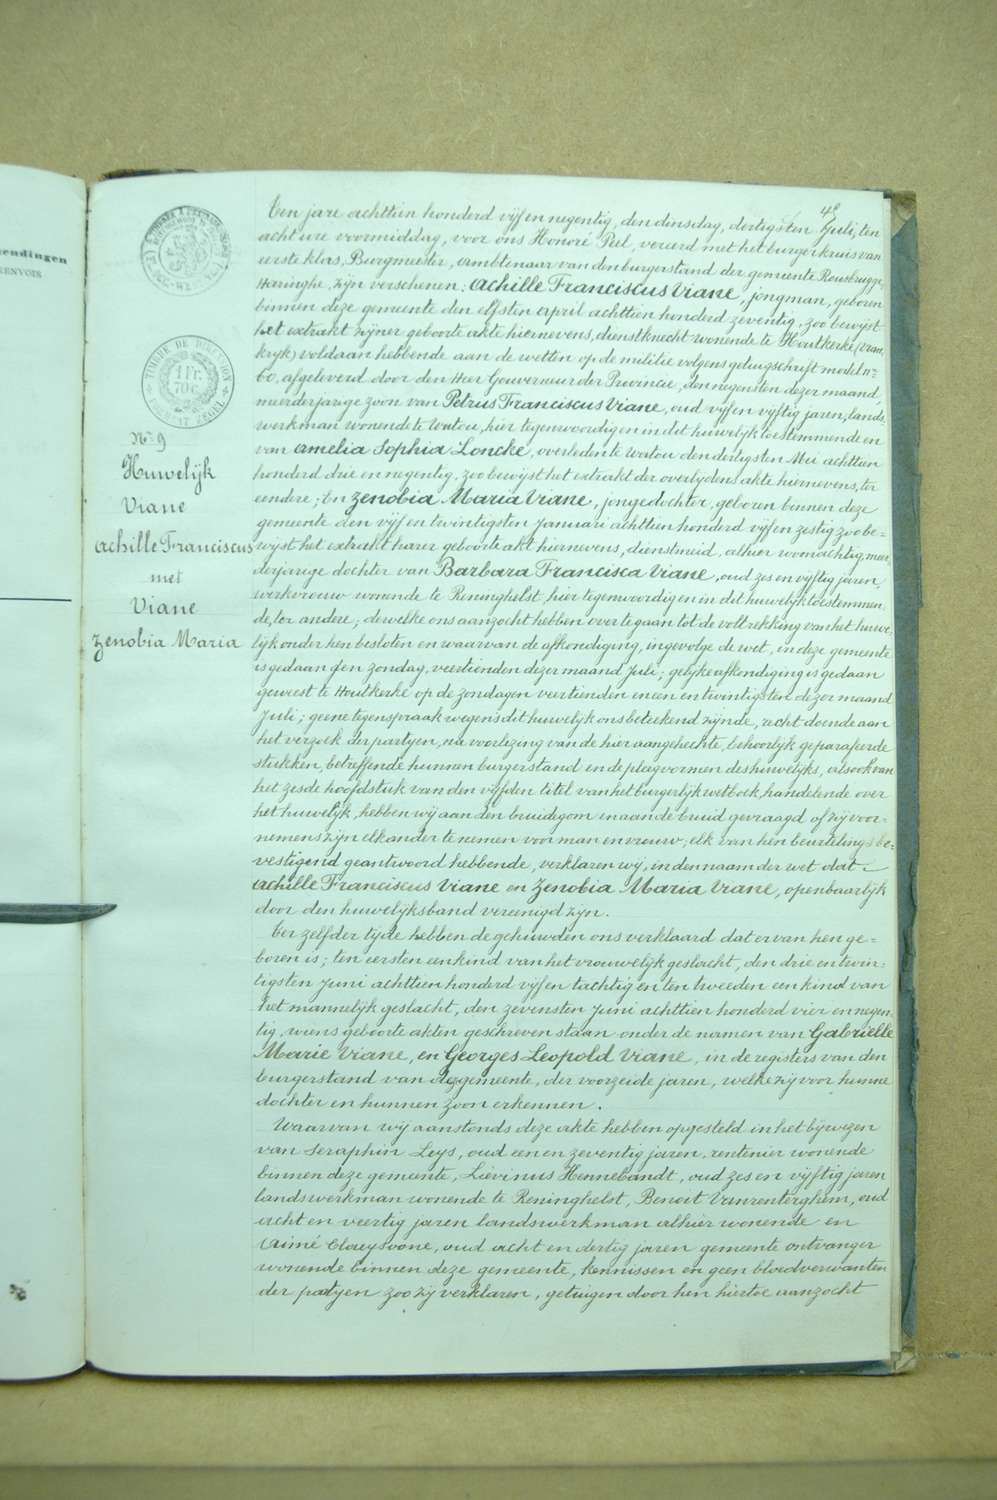 endingen
ENVOIS
48
TIMBRE DE DIMENSION
1 Fr.
70 c.
Nr 9
Huwelijk
Viane
Achille Franciscus
met
Viane
Zenobia Maria
Ten jare achttien honderd vijf en negentig, den dinsdag, dertigsten Juli, ten
acht ure voormiddag, voor ons Honoré Peel, vereerd met het burgerkruis van
eerste klas, Burgmeester, ambtenaar van den burgerstand der gemeente Rousbrugge-
Haringhe, zijn verschenen: Achille Franciscus Viane, jongman, geboren
binnen deze gemeente den elfsten april achttien honderd zeventig, zoo bewijst
het extrakt zijner geboorte akte hiernevens, dienstknecht wonende te Houtkerke (Vran
kryk) voldaan hebbende aan de wetten op de militie volgens getuigschrift model nr
60, afgeleverd door den Heer Gouverneur der Provincie, den negensten dezer maand,
meerderjarige zoon van Petrus Franciscus Viane, oud vijf en vijftig jaren, lands-
werkman wonende te Watou, hier tegenwoordig en in dit huwelijk toestemmende en
van Amelia Sophia Loncke, overleden te Watou den dertigsten Mei achttien
honderd drie en negentig, zoo bewijst het extrakt der overlydens akte hiernevens, ter
eendere; En Zenobia Maria Viane, jongedochter, geboren binnen deze
gemeente den vijf en twintigsten Januari achttien honderd vijf en zestig zoo be-
wijst het extrakt harer geboorte akt hiernevens, dienstmeid, alhier woonachtig, meer
derjarige dochter van Barbara Francisca Viane, oud zes en vijftig jaren,
werkvrouw wonende te Reninghelst, hier tegenwoordig en in dit huwelijk toestemmen
de, ter andere; dewelke ons aanzocht hebben over te gaan tot de voltrekking van het huwe-
lijk onder hen besloten en waarvan de afkondiging, ingevolge de wet, in deze gemeente
is gedaan den zondag, veertienden dezer maand Juli; gelijke afkondiging is gedaan
geweest te Houtkerke op de zondagen veertienden en een en twintigsten dezer maand
Juli; geene tegenspraak wegens dit huwelijk ons beteekend zijnde, recht doende aan
het verzoek der partyen, na voorlezing van de hier aangehechte, behoorlijk geparafeerde
stukken, betreffende hunnen burgerstand en de pleegvormen des huwelijks, alsook van
het zesde hoofdstuk van den vijfden titel van het burgerlijk wetboek, handelende over
het huwelijk, hebben wij aan den bruidigom en aan de bruid gevraagd of zij voor-
nemens zijn elkander te nemen voor man en vrouw; elk van hen beurtelings be-
vestigend geantwoord hebbende, verklaren wy, in den naam der wet dat
Achille Franciscus Viane en Zenobia Maria Viane, openbaarlijk
door den huwelyksband vereenigd zyn.
Ter zelfder tijde hebben de gehuwden ons verklaard dat er van hen ge-
boren is; ten eersten een kind van het vrouwelijk geslacht, den drie en twin-
tigsten Juni achttien honderd vijf en tachtig en ten tweeden een kind van
het mannelijk geslacht, den zevensten Juni achttien honderd vier en negen-
tig, wiens geboorte akten geschreven staan onder de namen van Gabrielle
Marie Viane, en Georges Leopold Viane, in de registers van den
burgerstand van dezgemeente, der voorzeide jaren, welke zij voor hunne
dochter en hunnen zoon erkennen.
Waarvan wij aanstonds deze akte hebben opgesteld in het bijwezen
van Seraphin Leys, oud een en zeventig jaren, rentenier wonende
binnen deze gemeente, Lievinus Hennebandt, oud zes en vijftig jaren
landswerkman wonende te Reninghelst, Benoit Vanrenterghem, oud
acht en veertig jaren landswerkman alhier wonende en
Aimé Claeysoone, oud acht en dertig jaren gemeente ontvanger
wonende binnen deze gemeente, kennissen en geen bloedverwanten
der partyen zoo zij verklaren, getuigen door hen hiertoe aanzocht